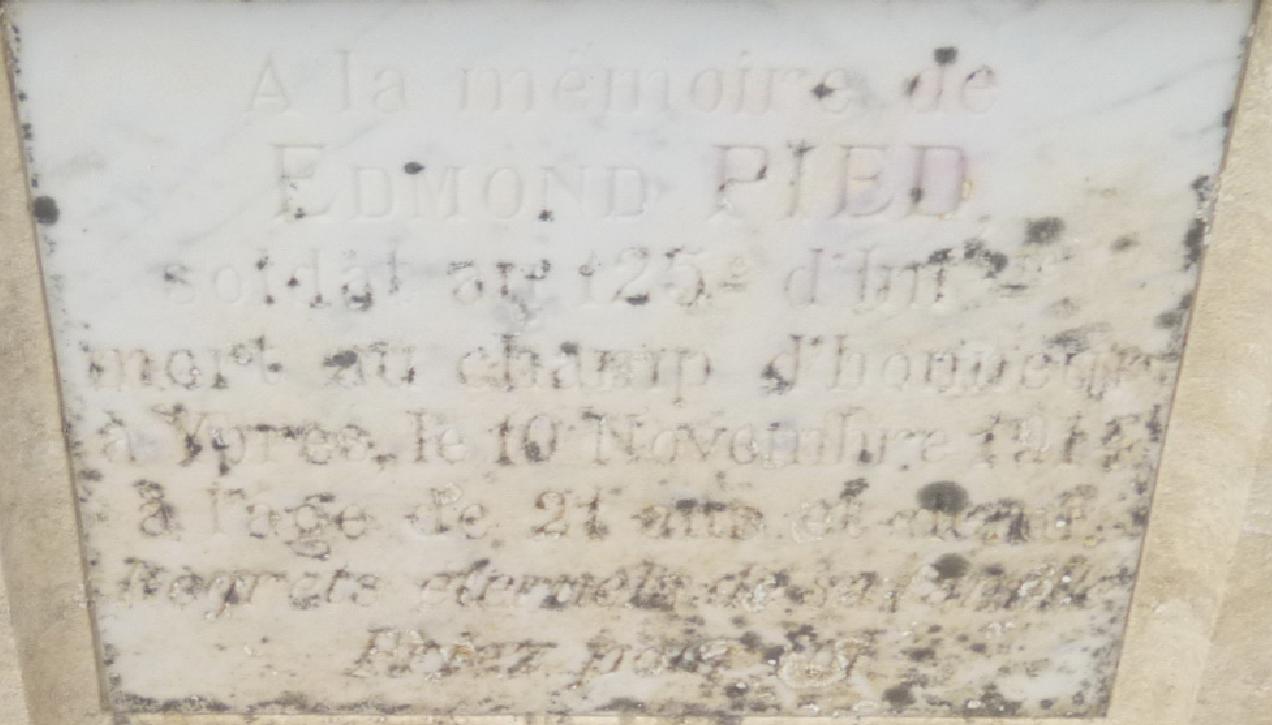 A la mémoire de
EDMOND PIED
soldat au 125e d'Inf rie
mort au champ d'honneur
à Ypres, le 10 Novembre 1914
à l'age de 21 ans et demi.
Regrets éternels de sa famille
Priez pour lui